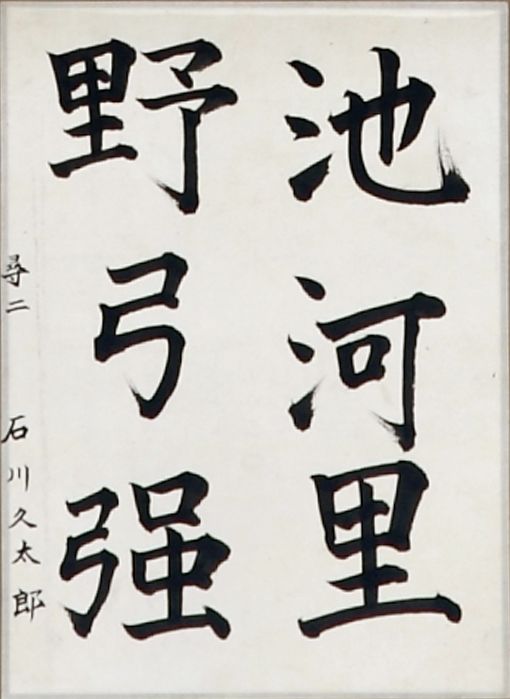 池河里
野弓强
尋二 石川久太郎